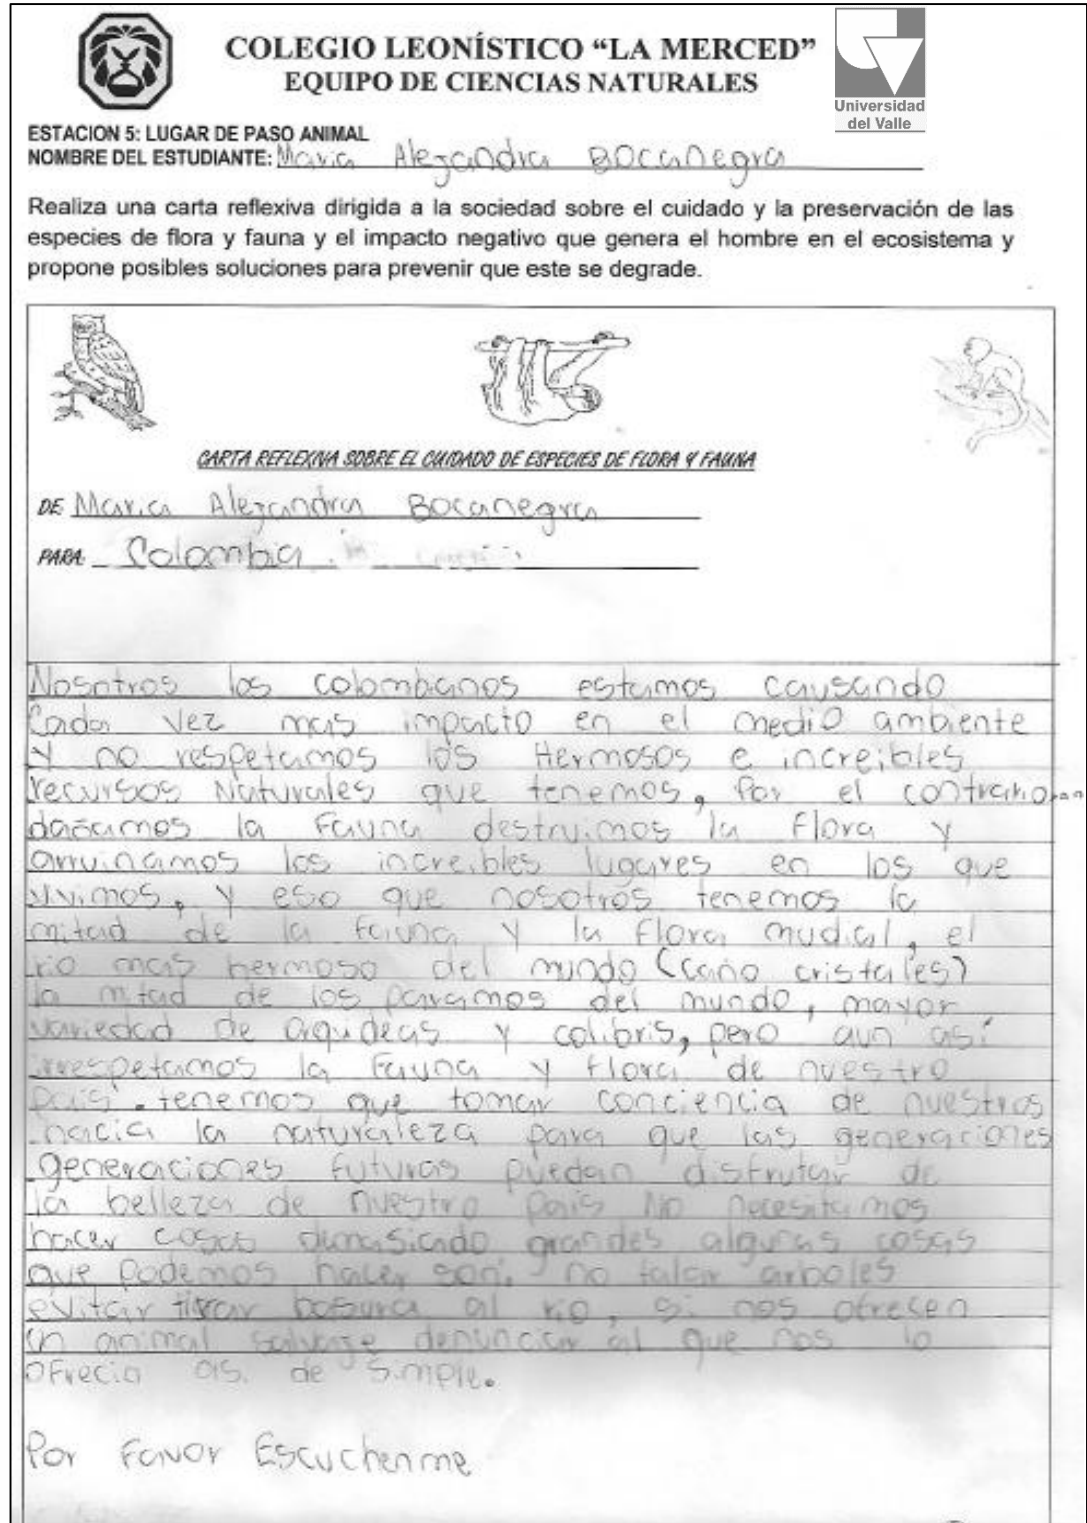 COLEGIO LEONÍSTICO “LA MERCED”
EQUIPO DE CIENCIAS NATURALES
Universidad
del Valle
ESTACION 5: LUGAR DE PASO ANIMAL
NOMBRE DEL ESTUDIANTE: Maria Alejandra Bocanegra
Realiza una carta reflexiva dirigida a la sociedad sobre el cuidado y la preservación de las
especies de flora y fauna y el impacto negativo que genera el hombre en el ecosistema y
propone posibles soluciones para prevenir que este se degrade.
CARTA REFLEXIVA SOBRE EL CUIDADO DE ESPECIES DE FLORA Y FAUNA
DE: Maria Alejandra Bocanegra
PARA: Colombia
Nosotros los colombianos estamos causando
Cada vez mas impacto en el medio ambiente
Y no respetamos los Hermosos e increibles
recursos Naturales que tenemos, Por el contrario
dañamos la Fauna destruimos la Flora y
arruinamos los increibles lugares en los que
vivimos, y eso que nosotros tenemos la
mitad de la fauna y la flora mudial, el
rio mas hermoso del mundo (caño cristales)
la mitad de los paramos del mundo, mayor
variedad de orquideas y colibris, pero aun así
irrespetamos la Fauna y flora de nuestro
Pais. tenemos que tomar conciencia de nuestros
hacia la naturaleza para que las generaciones
generaciones futuras puedan disfrutar de
la belleza de nuestro Pais No necesitamos
hacer cosas demasiado grandes algunas cosas
que Podemos hacer son: no talar arboles
evitar tirar basura al rio, si nos ofrecen
un animal salvaje denunciar al que nos lo
ofrecia asi de simple.
Por Favor Escuchenme